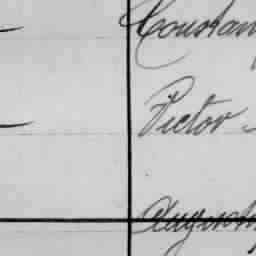 Constan
Victor
August